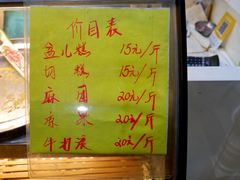 价目表
盆儿糕 15元/斤
切糕 15元/斤
麻团 20元/斤
凉果 20元/斤
牛打滚 20元/斤